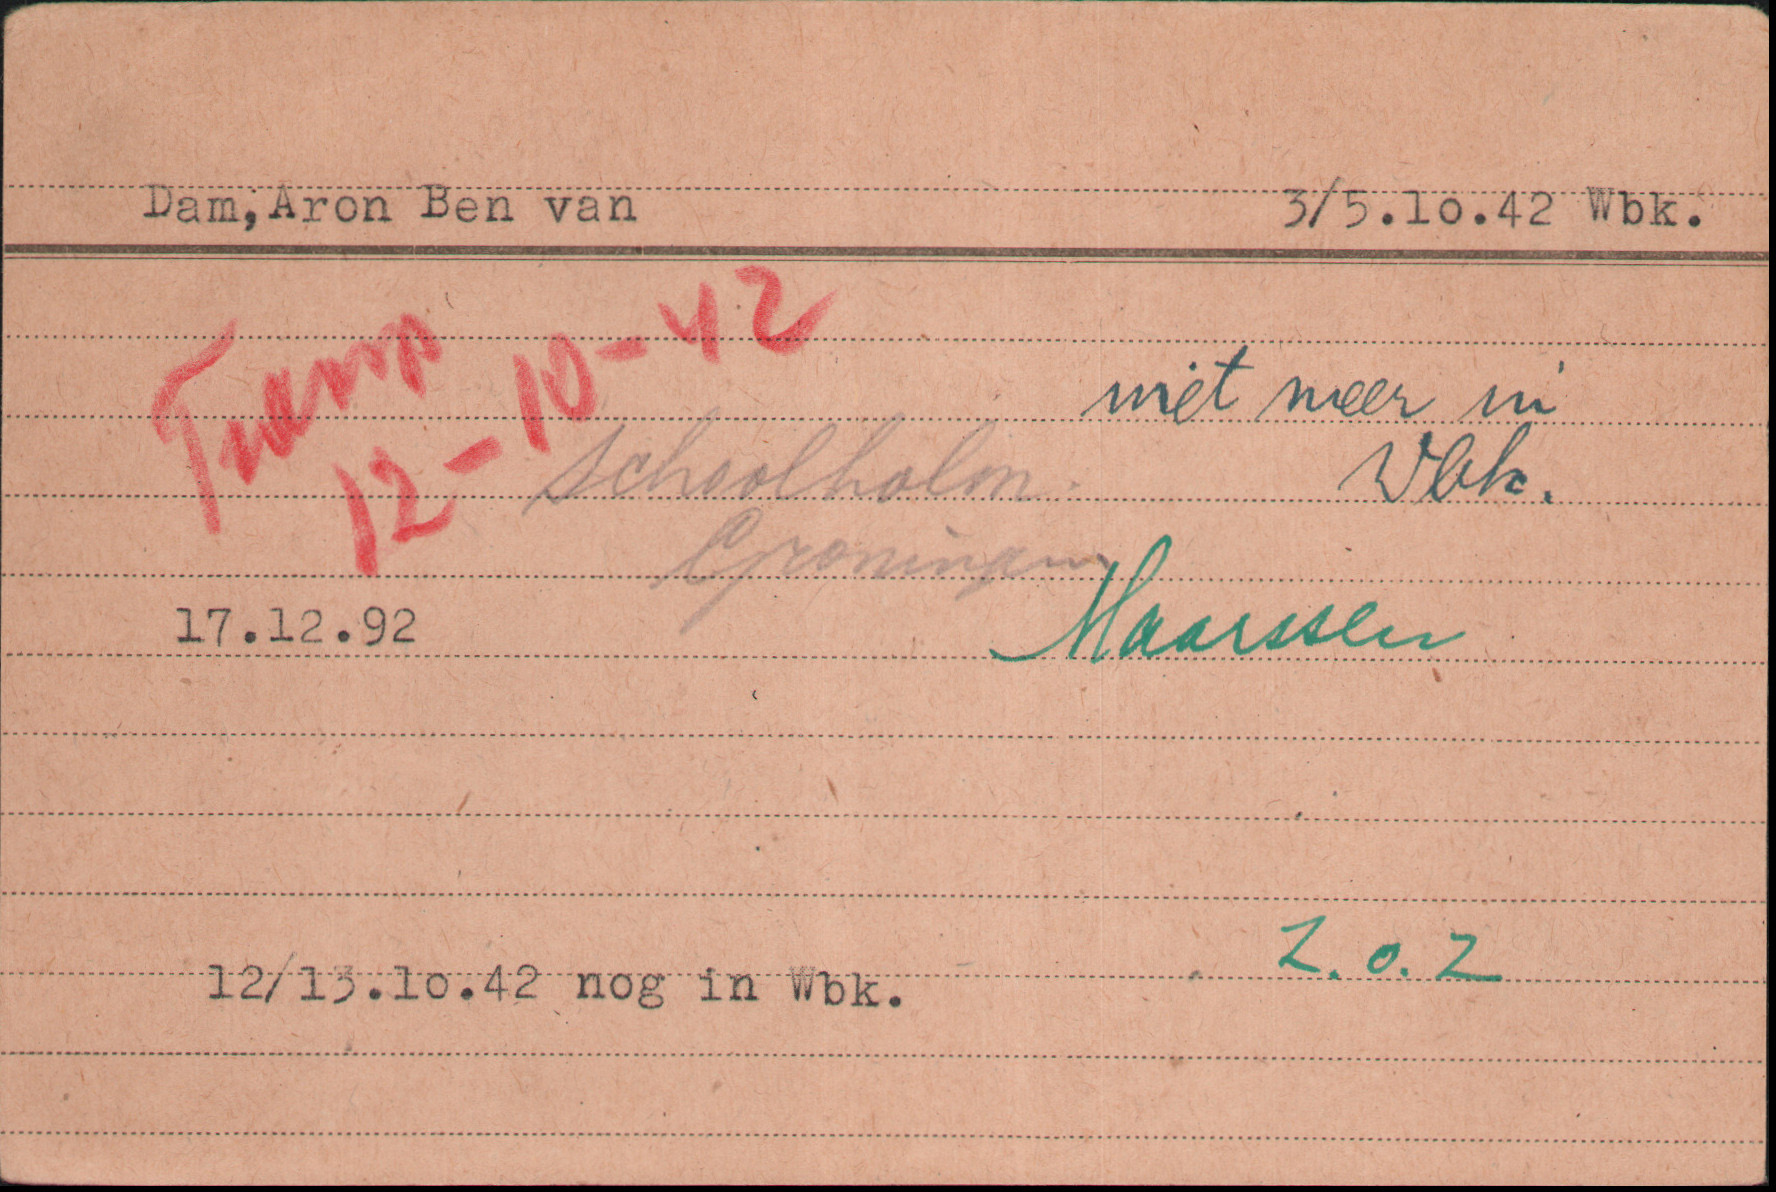 Dam, Aron Ben van 3/5.1o.42 Wbk.
Transp
12-10-42
niet meer in
Wbk.
Schoolholm.
Groningen
Maarssen
17.12.92
Z.o.Z
12/13.1o.42 nog in Wbk.